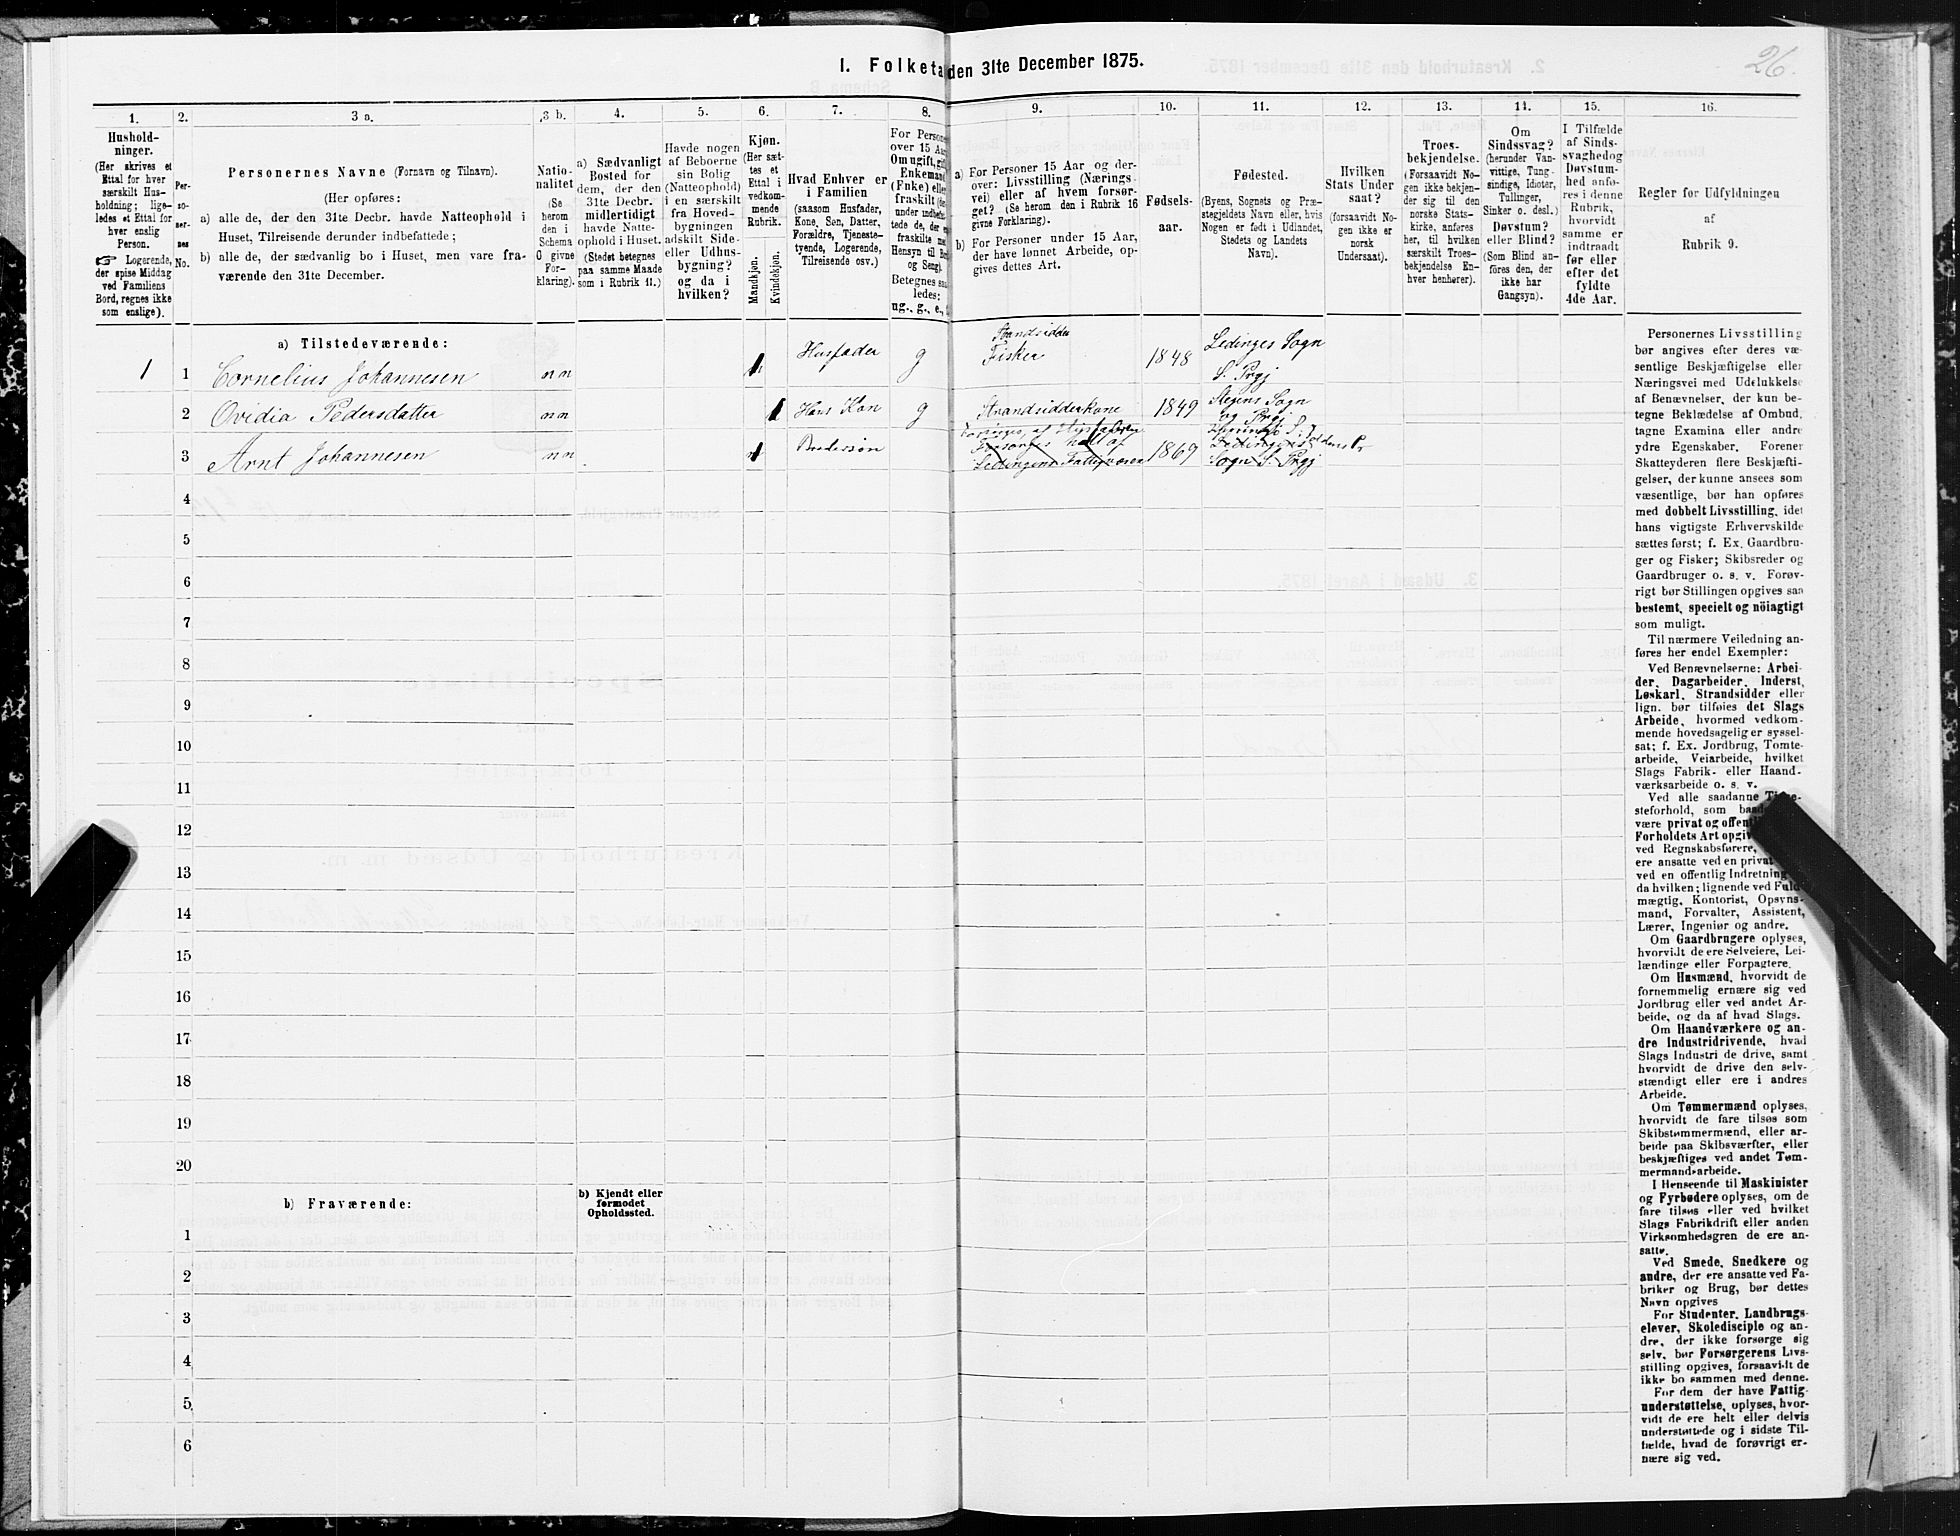 I. Folketa den 31te December 1875.
26.
1. 2. 3 a. 3 b. 4. 5. 6. 7. 8. 9. 10. 11. 12. 13. 14. 15. 16.
Hushold-
ninger.
(Her skrives et
Ettal for hver
særskilt Hus-
holdning; lige-
ledes et Ettal for
hver enslig
Person.
☞ Logerende,
der spise Middag
ved Familiens
Bord, regnes ikke
som enslige).
Per-
so-
ner-
nes
No.
Personernes Navne (Fornavn og Tilnavn).
(Her opføres:
a) alle de, der den 31te Decbr. havde Natteophold i
Huset, Tilreisende derunder indbefattede;
b) alle de, der sædvanlig bo i Huset, men vare fra-
værende den 31te December.
Natio-
nalitet
(Se
herom
den i
Schema
O givne
For-
klaring).
a) Sædvanligt
Bosted for
dem, der den
31te Decbr.
midlertidigt
havde Natte-
ophold i Huset.
(Stedet betegnes
paa samme Maade
som i Rubrik 11.)
Havde nogen
af Beboerne
sin Bolig
(Natteophold)
i en særskilt
fra Hoved-
bygningen
adskilt Side-
eller Udhus-
bygning?
og da i
hvilken?
Kjøn.
(Her sæt-
tes et
Ettal i
vedkom-
mende
Rubrik.
Mandkjøn.
Kvindekjøn.
Hvad Enhver er
i Familien
(saasom Husfader,
Kone, Søn, Datter,
Forældre, Tjeneste-
tyende, Logerende,
Tilreisende osv.)
For Person
over 15 Aa
Om ugift, gif
Enkemand
(Fnke) elle
fraskilt (de
under indbefat
tede de, der e
fraskilte me
Hensyn til Bo
og Seng).
Betegnes saa
ledes:
ug., g., e.,
a) For Personer 15 Aar og der-
over: Livsstilling (Nærings-
vei) eller af hvem forsør-
get? (Se herom den i Rubrik 16
givne Forklaring).
b) For Personer under 15 Aar,
der have lønnet Arbeide, op-
gives dettes Art.
Fødsels-
aar.
Fødested.
(Byens, Sognets og Præ-
stegjeldets Navn eller, hvis
Nogen er født i Udlandet,
Stedets og Landets
Navn).
Hvilken
Stats Under
saat?
(forsaavidt No-
gen ikke er
norsk
Undersaat).
Troes-
bekjendelse.
(Forsaavidt No-
gen ikke bekjen-
der sig til den
norske Stats-
kirke, anføres
her, til hvilken
særskilt Troes-
bekjendelse En-
hver henhører).
Om
Sindssvag?
(herunder Van-
vittige, Tung-
sindige, Idioter,
Tullinger,
Sinker o. desl.)
Døvstum?
eller Blind?
(Som Blind an-
føres den, der
ikke har
Gangsyn).
I Tilfælde
af Sinds-
svaghedog
Døvstum-
hed anfø-
res i denne
Rubrik,
hvorvidt
samme er
indtraadt
før eller
efter det
fyldte
4de Aar.
Regler før Udfyldningen
af
Rubrik 9.
a) Tilstedeværende:
1 1 Cornelius Johannesen nn 1 Husfader g Strandsidder Fisker 1848 Lødinges Sogn S. Prgj
2 Ovidia Pedersdatter nn 1 Hans Kon g Strandsidderkone 1849 Stegens Sogn og Prgj
3 Arnt Johannesen nn 1 Brodersøn 1869 Sogn S. Prgj
4
5
6
7
8
9
10
11
12
13
14
15
16
17
18
19
20
b) Fraværende:
b) Kjendt eller
formodet
Opholdssted.
1
2
3
4
5
6
Personernes Livsstilling
bør angives efter deres væ-
sentlige Beskjæftigelse eller
Næringsvei med Udelukkelse
af Benævnelser, der kun be-
tegne Beklædelse af Ombud,
tagne Examina eller andre
ydre Egenskaber. Forener
Skatteyderen flere Beskjæfti-
gelser, der kunne ansees som
væsentlige, bør han opføres
med dobbelt Livsstilling, idet
hans vigtigste Erhvervskilde
sættes først; f. Ex. Gaardbru-
ger og Fisker; Skibsreder og
Gaardbruger o. s. v. Forøv-
rigt bør Stillingen opgives saa
bestemt, specielt og nöiagtigt
som muligt.
Til nærmere Veiledning an-
føres her endel Exempler:
Ved Benævnelserne: Arbei-
der, Dagarbeider, Inderst,
Løskarl, Strandsidder eller
lign. bør tilføies det Slags
Arbeide, hvormed vedkom-
mende hovedsagelig er syssel-
sat; f. Ex. Jordbrug, Tomte-
arbeide, Veiarbeide, hvilket
Slags Fabrik- eller Haand-
værksarbeide o. s. v.
Ved alle saadanne
steforhold, som
være privat og
Forholdets Art
ved Regnskabsførere,
ere ansatte ved en privat
ved en offentlig Indretning
da hvilken; lignende ved Fuld-
mægtig, Kontorist, Opsyns-
mand, Forvalter, Assistent,
Lærer, Ingeniør og andre.
Om Gaardbrugere oplyses,
hvorvidt de ere Selveiere, Lei-
lændinge eller Forpagtere.
Om Husmænd, hvorvidt de
fornemmelig ernære sig ved
Jordbrug eller ved andet Ar-
beide, og da af hvad Slags.
Om Haandværkere og an-
dre Industridrivende, hvad
Slags Industri de drive, samt
hvorvidt de drive den selv-
stændigt eller ere i andres
Arbeide.
Om Tømmermænd oplyses,
hvorvidt de fare tilsøs som
Skibstømmermænd, eller ar-
beide paa Skibsværfter, eller
beskjæftiges ved andet Tøm-
mermandsarbeide.
I Henseende til Maskinister
og Fyrbødere oplyses, om de
fare tilsøs eller ved hvilket
Slags Fabrikdrift eller anden
Virksomhedsgren de ere an-
satte.
Ved Smede, Snedkere og
andre, der ere ansatte ved Fa-
briker og Brug, bør dettes
Navn opgives
For Studenter, Landbrugs-
elever, Skoledisciple og an-
dre, der ikke forsørge sig
selv, bør Forsørgerens Livs-
stilling opgives, forsaavidt de
ikke bo sammen med denne.
For dem der have Fattig-
understøttelse, oplyses, hvor-
vidt de ere helt eller delvis
understøttede og i sidste Til-
fælde, hvad de forøvrigt er-
nære sig ved.